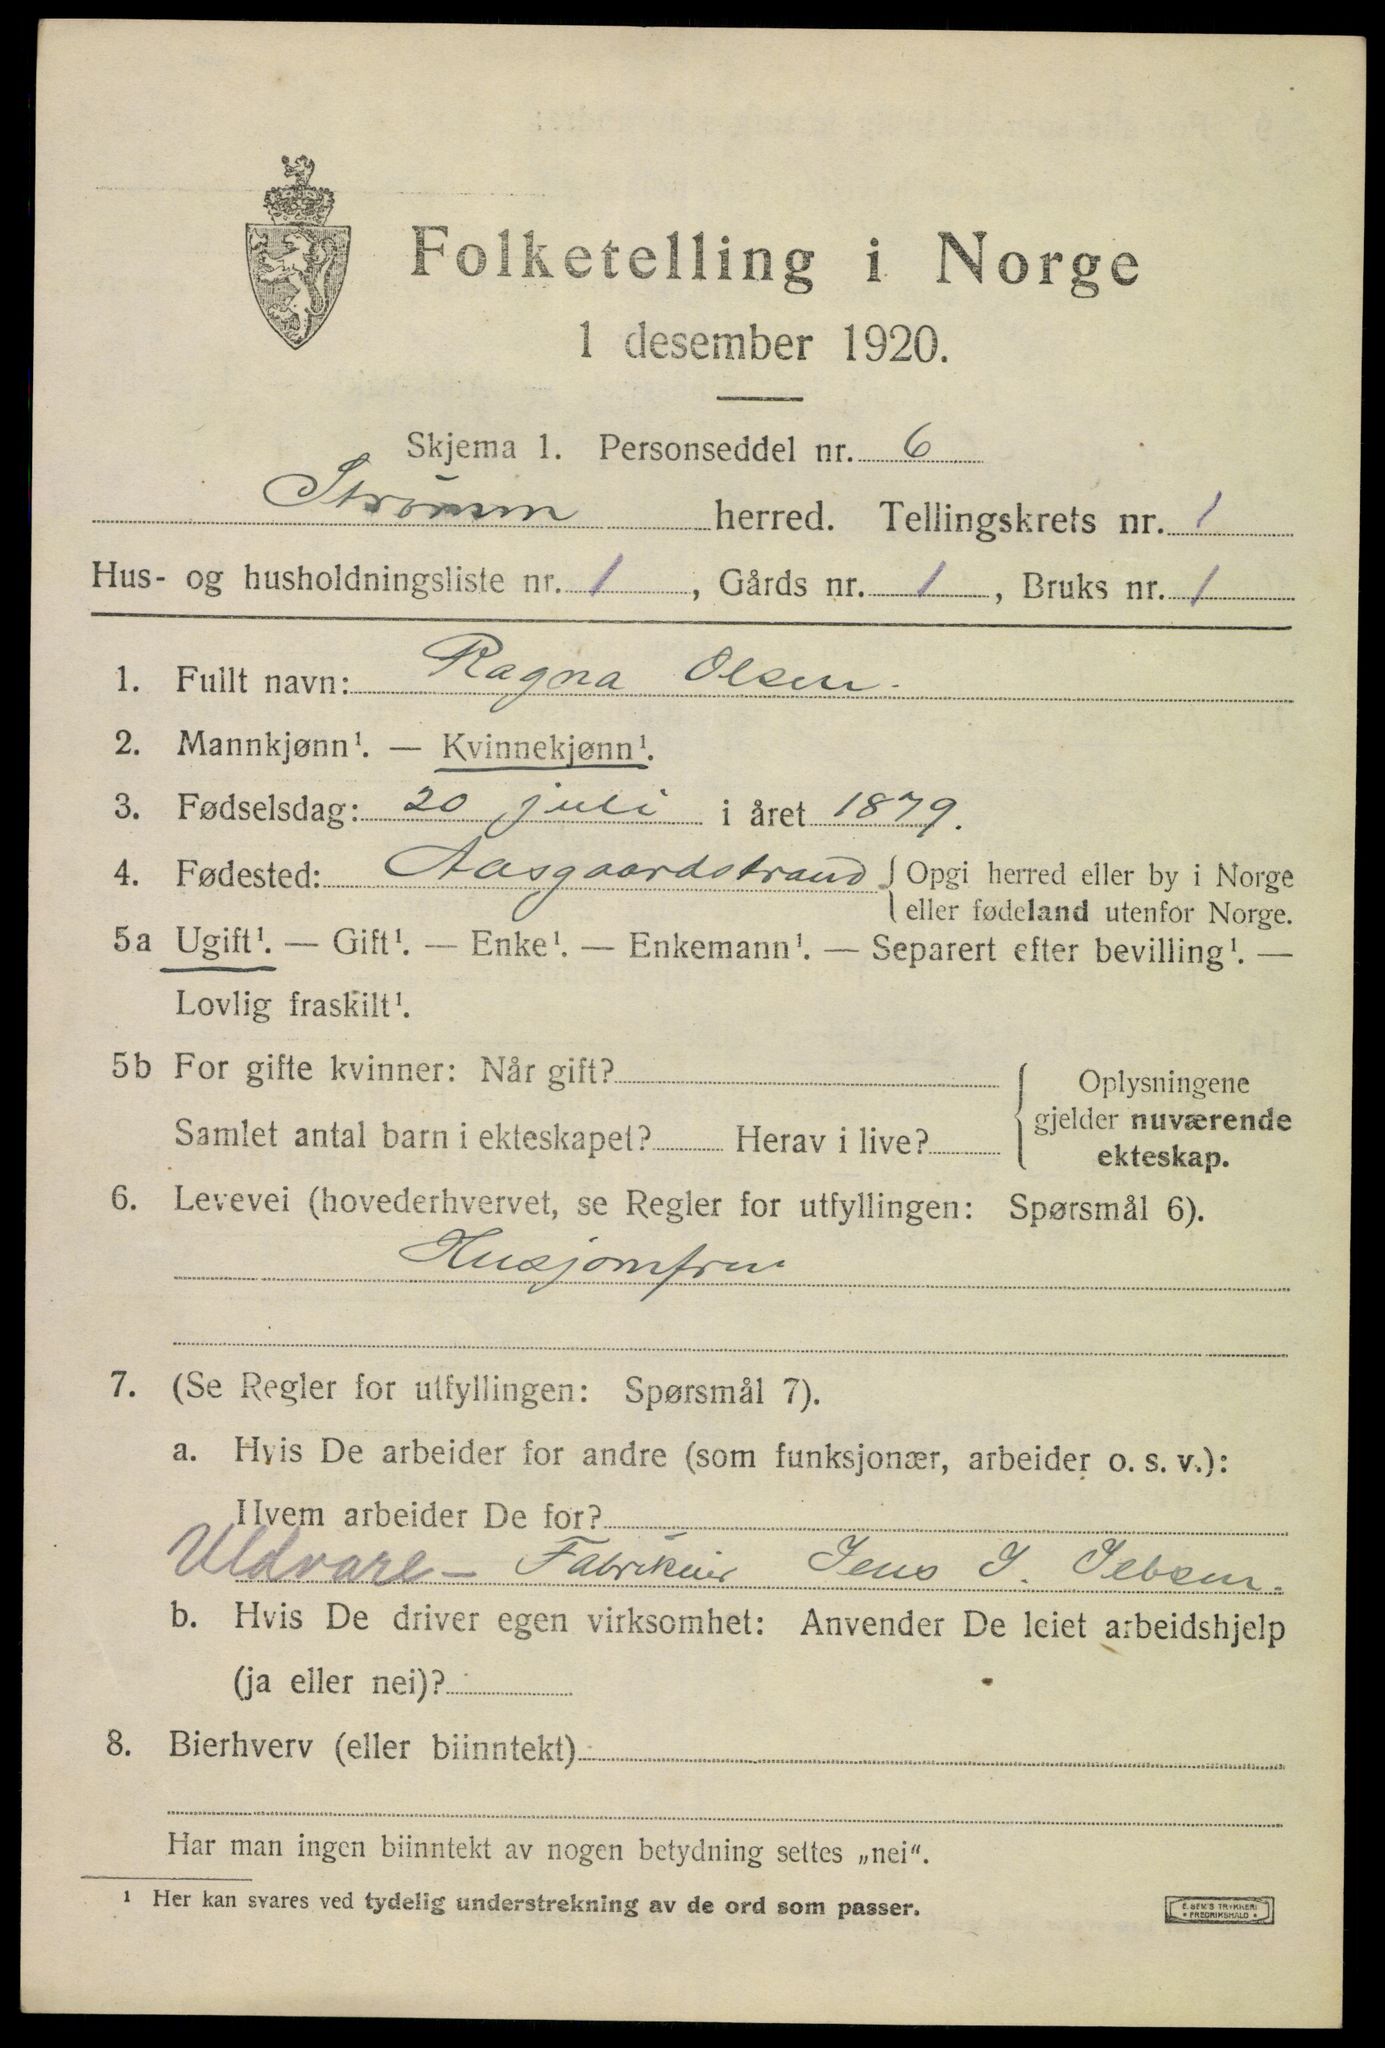 Folketelling i Norge
1 desember 1920.
Skjema 1. Personseddel nr. 6
Strømm herred. Tellingskrets nr. 1
Hus- og husholdningsliste nr. 1, Gårds nr. 1, Bruks nr. 1
1. Fullt navn: Ragna Olsen.
2. Mannkjønn¹. — Kvinnekjønn¹.
3. Fødselsdag: 20 juli i året 1879.
4. Fødested: Aasgaardstrand { Opgi herred eller by i Norge
eller fødeland utenfor Norge.
5a Ugift¹. — Gift¹. — Enke¹. — Enkemann¹. — Separert efter bevilling¹. —
Lovlig fraskilt¹.
5b For gifte kvinner: Når gift?
Samlet antal barn i ekteskapet? Herav i live?
{ Oplysningene
gjelder nuværende
ekteskap.
6. Levevei (hovederhvervet, se Regler for utfyllingen: Spørsmål 6).
Husjomfru
7. (Se Regler for utfyllingen: Spørsmål 7).
a. Hvis De arbeider for andre (som funksjonær, arbeider o. s. v.):
Hvem arbeider De for?
Uldvare- Fabrikeier Jens J. Jebsen.
b. Hvis De driver egen virksomhet: Anvender De leiet arbeidshjelp
(ja eller nei)?
8. Bierhverv (eller biinntekt)
Har man ingen biinntekt av nogen betydning settes „nei“.
¹ Her kan svares ved tydelig understrekning av de ord som passer.
E. SEM'S TRYKKERI
* FREDRIKSHALD *